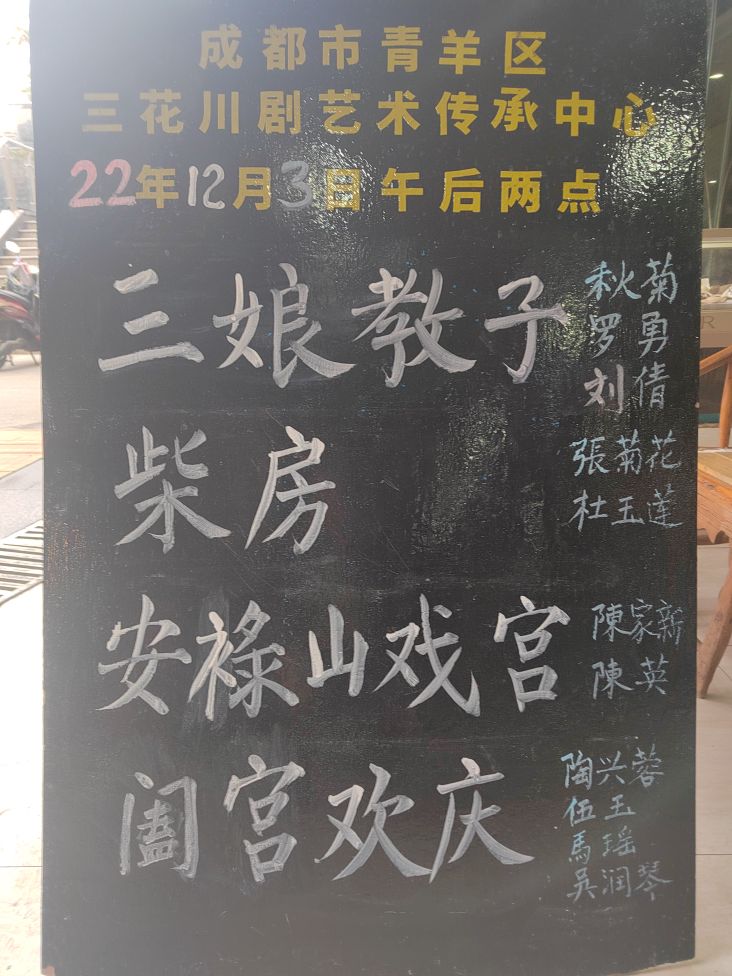 成都市青羊区
三花川剧艺术传承中心
22年12月3日午后两点
三娘教子 秋菊
罗勇
刘倩
柴房 張菊花
杜玉莲
安禄山戏宫 陳家新
陳英
阖宫欢庆 陶兴蓉
伍玉
馬瑶
吳润琴